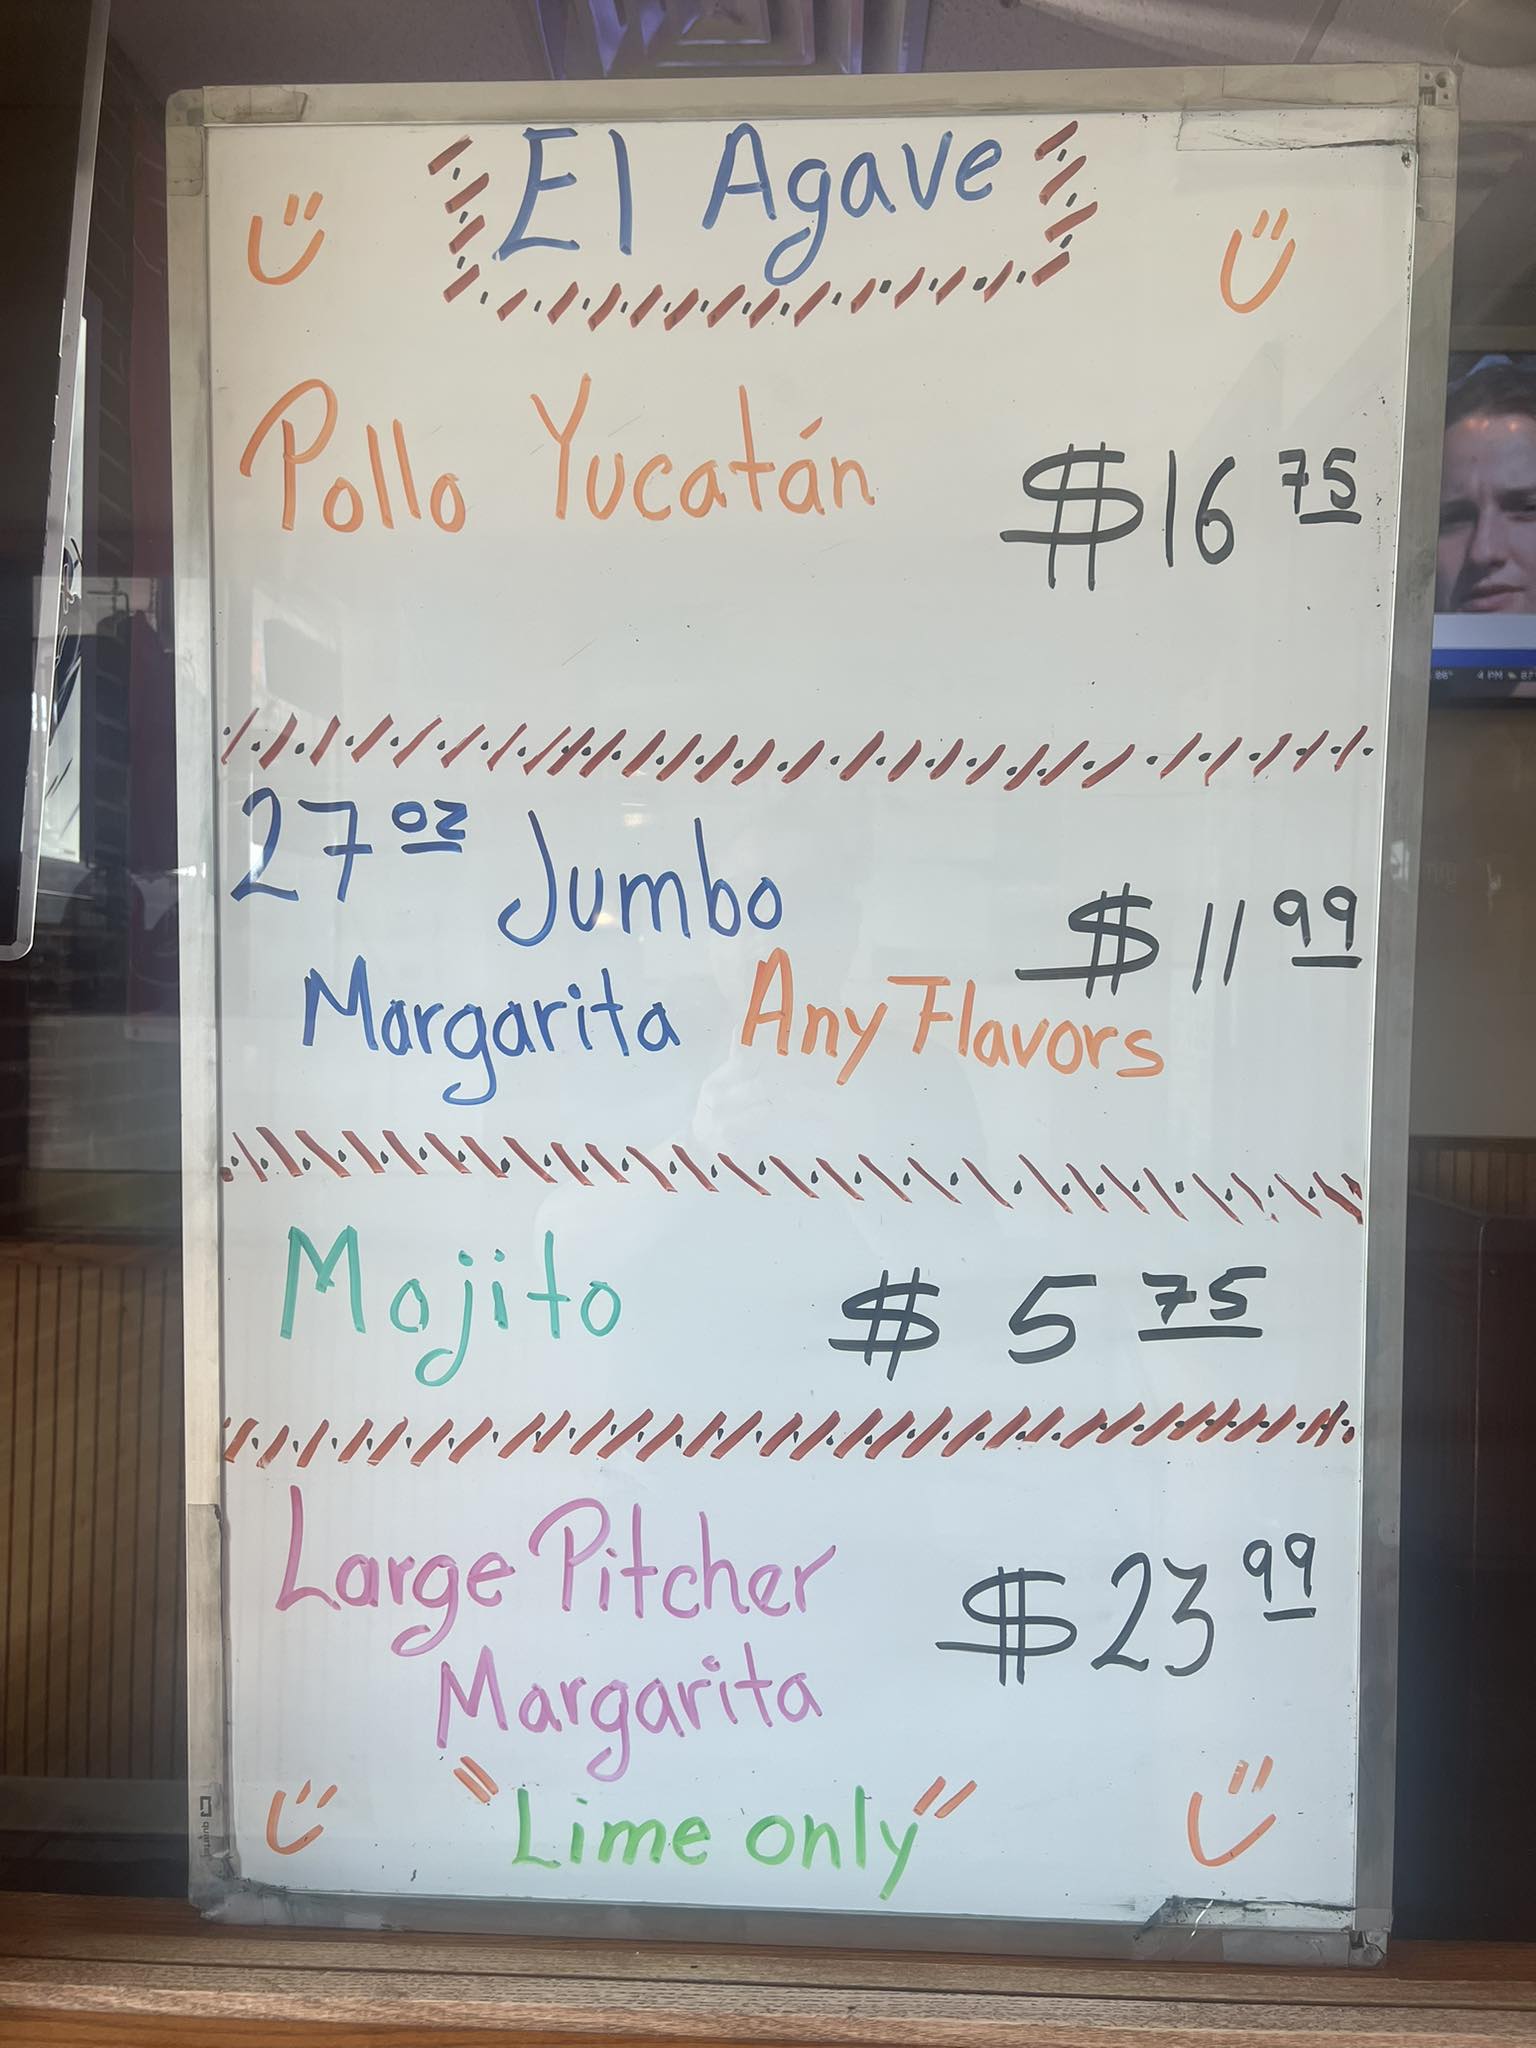 El Agave
Pollo Yucatán $16 75
27 oz Jumbo $11 99
Margarita Any Flavors
Mojito $5 75
Large Pitcher $23 99
Margarita
"Lime only"